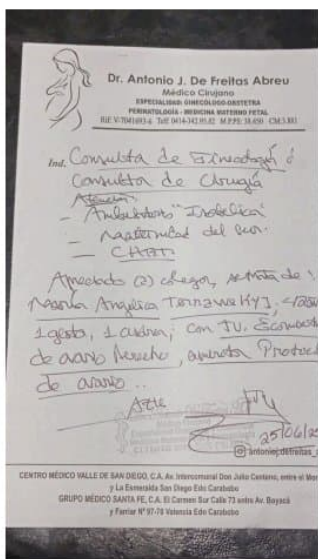 Dr. Antonio J. De Freitas Abreu
Médico Cirujano
ESPECIALIDAD: GINECÓLOGO-OBSTETRA
PERINATOLOGÍA - MEDICINA MATERNO FETAL
RIF. V-7041693-6 Telf. 0414-342.91.82 M.P.P.S: 38.850 CM:3.881
Ind. Consulta de Ginecología ó
Consulta de Cirugía
Atención:
- Ambulatorio "Isabelica"
- Maternidad del Sur.
- CHET.
Apreciado (a) colega, se trata de:
María Angélica
1 gesta, 1 cesárea; con
de ovario Derecho, amerita
de ovario..
Atte
25/06/25
antoniojdefreitas_a
CENTRO MÉDICO VALLE DE SAN DIEGO, C.A. Av. Intercomunal Don Julio Centeno, entre el Mor
y La Esmeralda San Diego Edo Carabobo
GRUPO MÉDICO SANTA FE, C.A. El Carmen Sur Calle 73 entre Av. Bayacá
y Farriar Nº 97-70 Valencia Edo Carabobo